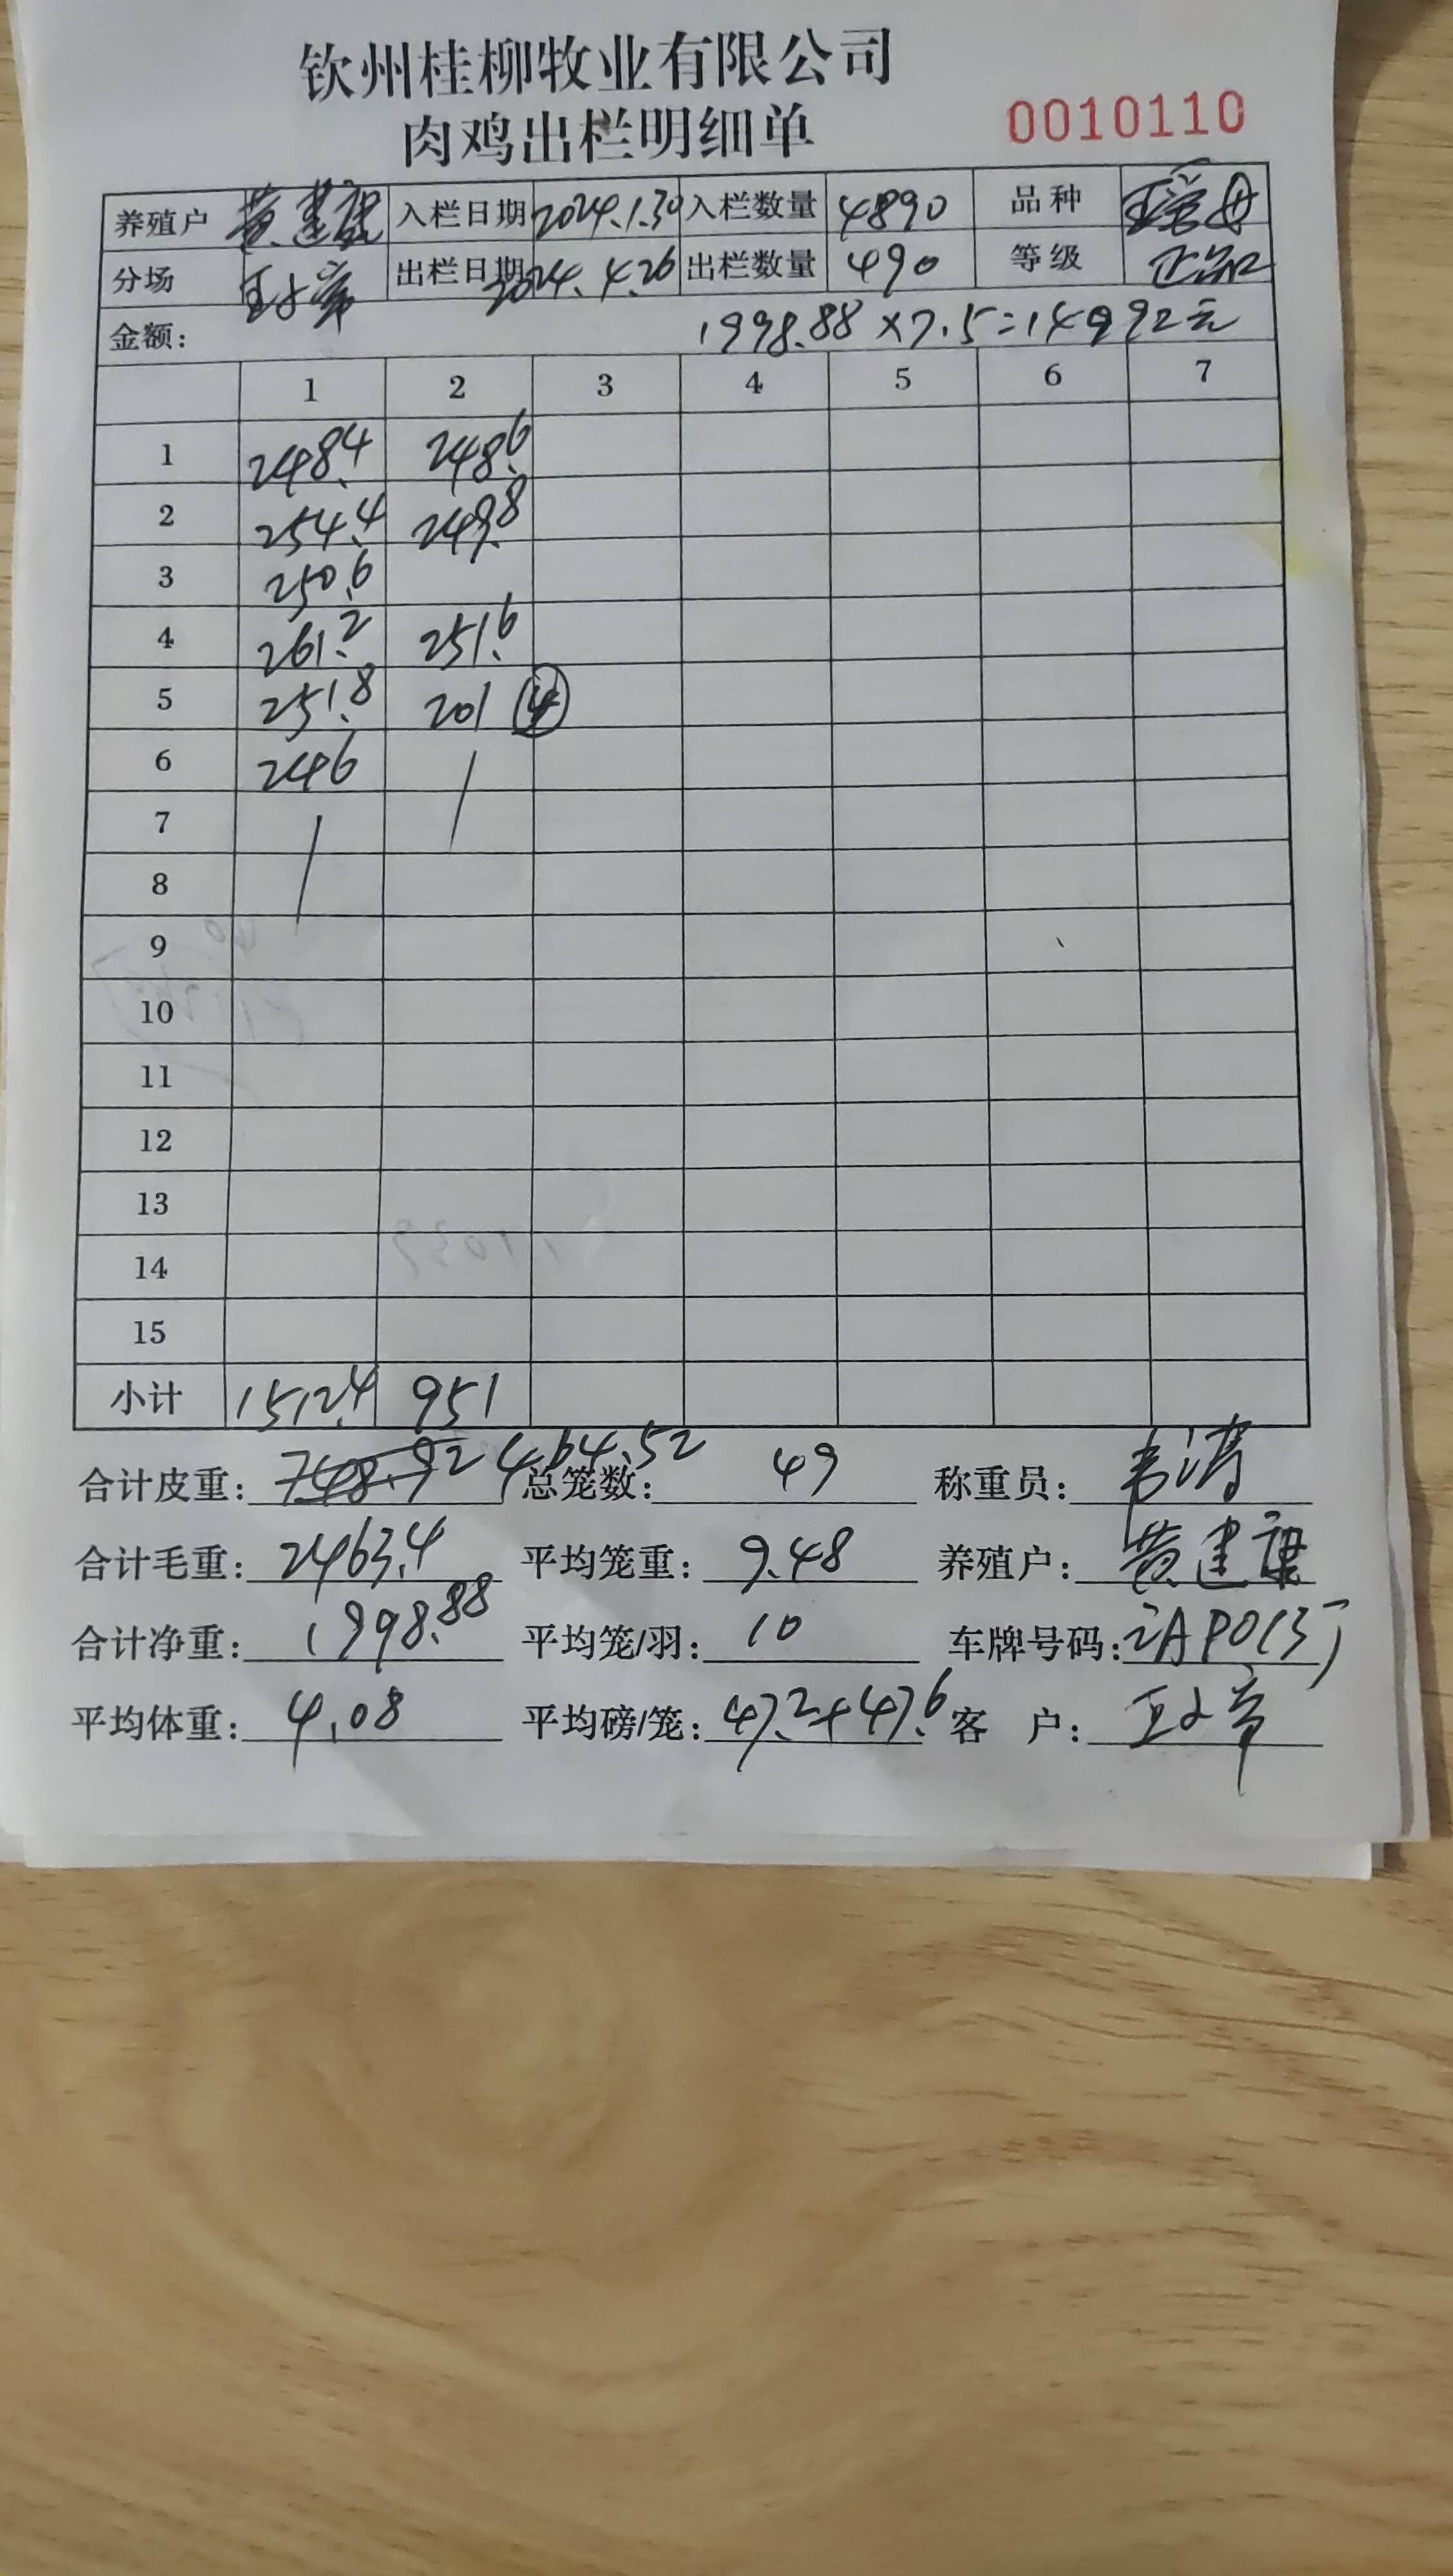 钦州桂柳牧业有限公司
肉鸡出栏明细单
0010110
养殖户 黄建 入栏日期 2024.1.30 入栏数量 4890 品种 母
分场 出栏日期 2024.4.26 出栏数量 490 等级 正品
金额: 1998.88×7.5=14992元
1 2 3 4 5 6 7
1 248.4 248.6
2 254.4 249.8
3 250.6
4 261.2 251.6
5 251.8 201 ④
6 246
7
8
9
10
11
12
13
14
15
小计 1512.4 951
合计皮重: 748.92 464.52 总笼数: 49 称重员: 韦涛
合计毛重: 2463.4 平均笼重: 9.48 养殖户: 黄建
合计净重: 1998.88 平均笼/羽: 10 车牌号码:
平均体重: 4.08 平均磅/笼: 47.2+47.6 客 户: